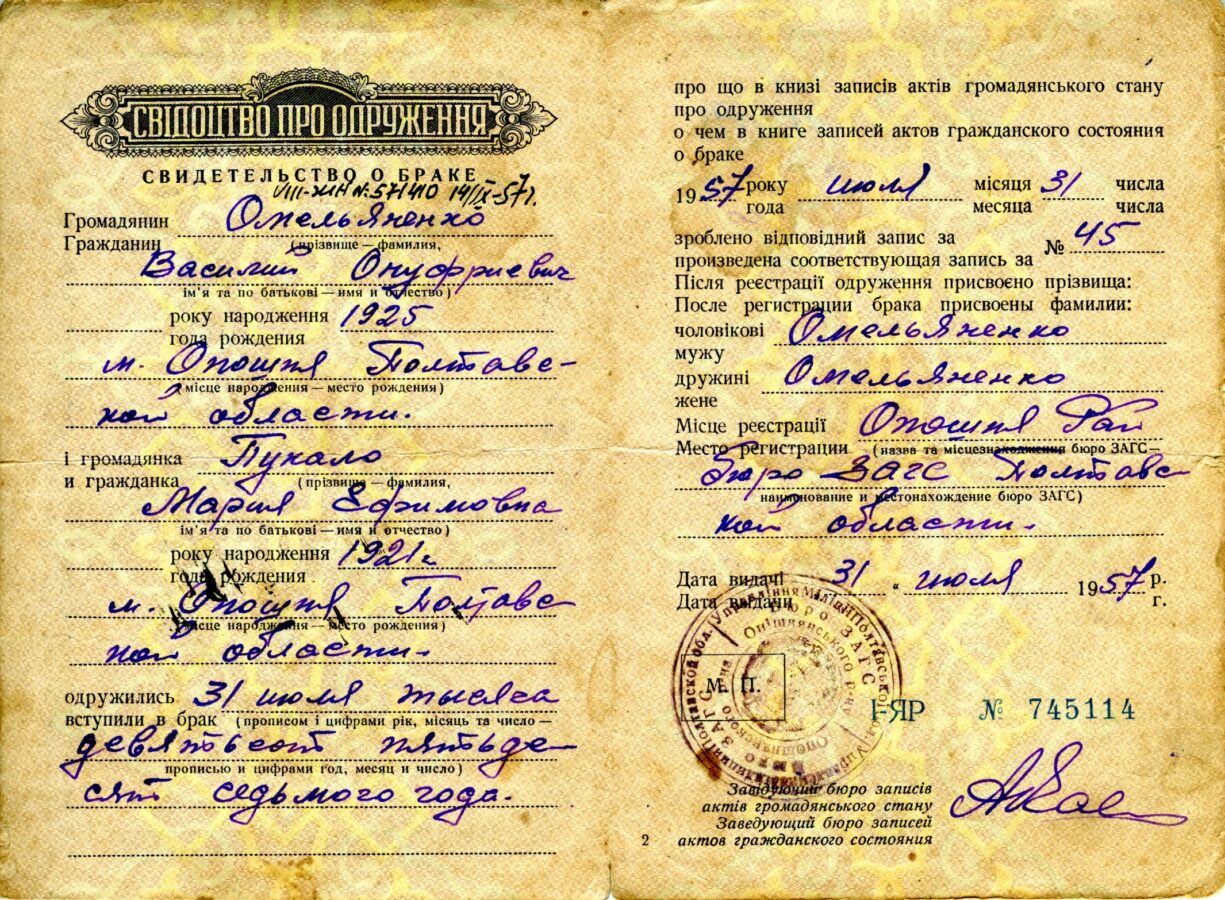 СВІДОЦТВО ПРО ОДРУЖЕННЯ
СВИДЕТЕЛЬСТВО О БРАКЕ
№ 571410 14/IX-57г.
Громадянин Омельяненко
Гражданин (прізвище — фамилия,
Василий Онуфриевич
ім'я та по батькові — имя и отчество)
року народження 1925
года рождения
м. Опошня Полтавс-
(місце народження — место рождения)
кой области.
і громадянка Пукало
и гражданка (прізвище — фамилия,
Мария Ефимовна
ім'я та по батькові — имя и отчество)
року народження 1921г.
года рождения
м. Опошня Полтавс
(місце народження — место рождения)
кой области.
одружились 31 июля тысяча
вступили в брак (прописом і цифрами рік, місяць та число —
девятьсот пятьде-
прописью и цифрами год, месяц и число)
сят седьмого года.
про що в книзі записів актів громадянського стану
про одруження
о чем в книге записей актов гражданского состояния
о браке
1957 року июля місяця 31 числа
года месяца числа
зроблено відповідний запис за № 45
произведена соответствующая запись за
Після реєстрації одруження присвоєно прізвища:
После регистрации брака присвоены фамилии:
чоловікові Омельяненко
мужу
дружині Омельяненко
жене
Місце реєстрації Опошня Рай
Место регистрации (назва та місцезнаходження бюро ЗАГС —
бюро ЗАГС Полтавс
наименование и местонахождение бюро ЗАГС)
кой области.
Дата видачі 31 " июля 1957 р.
Дата выдачи г.
Бюро ЗАГС
Опішнянського р-ну
М. П.
I-ЯР № 745114
Завідуючий бюро записів
актів громадянського стану
Заведующий бюро записей
2 актов гражданского состояния